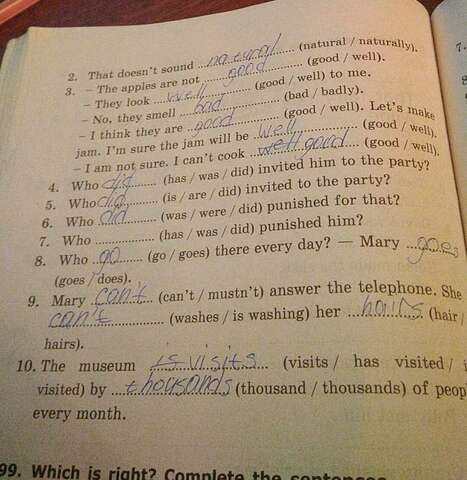 2. That doesn't sound natural (natural / naturally).
3. – The apples are not good (good / well).
– They look well (good / well) to me.
– No, they smell bad (bad / badly).
– I think they are good (good / well). Let's make
jam. I'm sure the jam will be well (good / well).
– I am not sure. I can't cook well good (good / well).
4. Who did (has / was / did) invited him to the party?
5. Who did (is / are / did) invited to the party?
6. Who did (was / were / did) punished for that?
7. Who ............ (has / was / did) punished him?
8. Who go (go / goes) there every day? — Mary goes
(goes / does).
9. Mary can't (can't / mustn't) answer the telephone. She
can't (washes / is washing) her hairs (hair /
hairs).
10. The museum is visits (visits / has visited / i
visited) by thousands (thousand / thousands) of peop
every month.
99. Which is right? Complete the sentences
7.
8